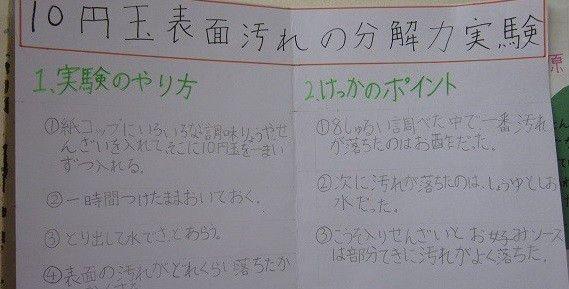 10円玉表面汚れの分解力実験
1.実験のやり方
①紙コップにいろいろな調味りょうやせ
んざいを入れて、そこに10円玉を一まい
ずつ入れる。
②一時間つけたままおいておく。
③とり出して水でさっとあらう。
④表面の汚れがどれくらい落ちたか
2.けっかのポイント
①8しゅるい調べた中で一番汚れ
が落ちたのはお酢だった。
②次に汚れが落ちたのは、しょうゆとしお
水だった。
③こうそ入りせんざいとお好みソース
は部分てきに汚れがよく落ちた。
原